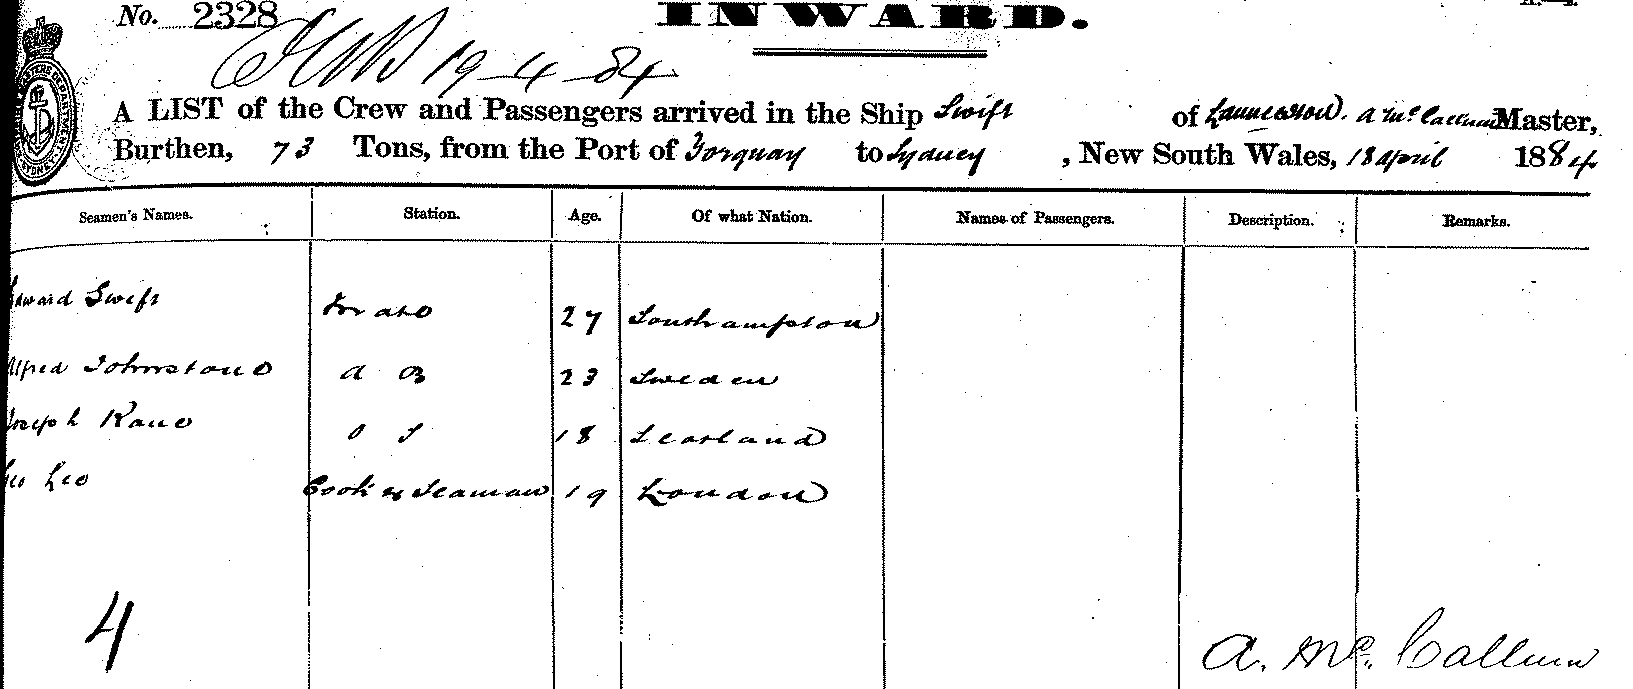 No. 2328
INWARD.
19-4-84
A LIST of the Crew and Passengers arrived in the Ship Swift of Launceston. A McCallum Master,
Burthen, 73 Tons, from the Port of Torquay to Sydney, New South Wales, 18 April 1884
Seamen's Names. Station. Age. Of what Nation. Names of Passengers. Description. Remarks.
Edward Swift 27 Southampton
Alfred Johnstone A B 23 Sweden
Joseph Kane O S 18 Scotland
Geo Leo Cook & Seaman 19 London
4
A. McCallum